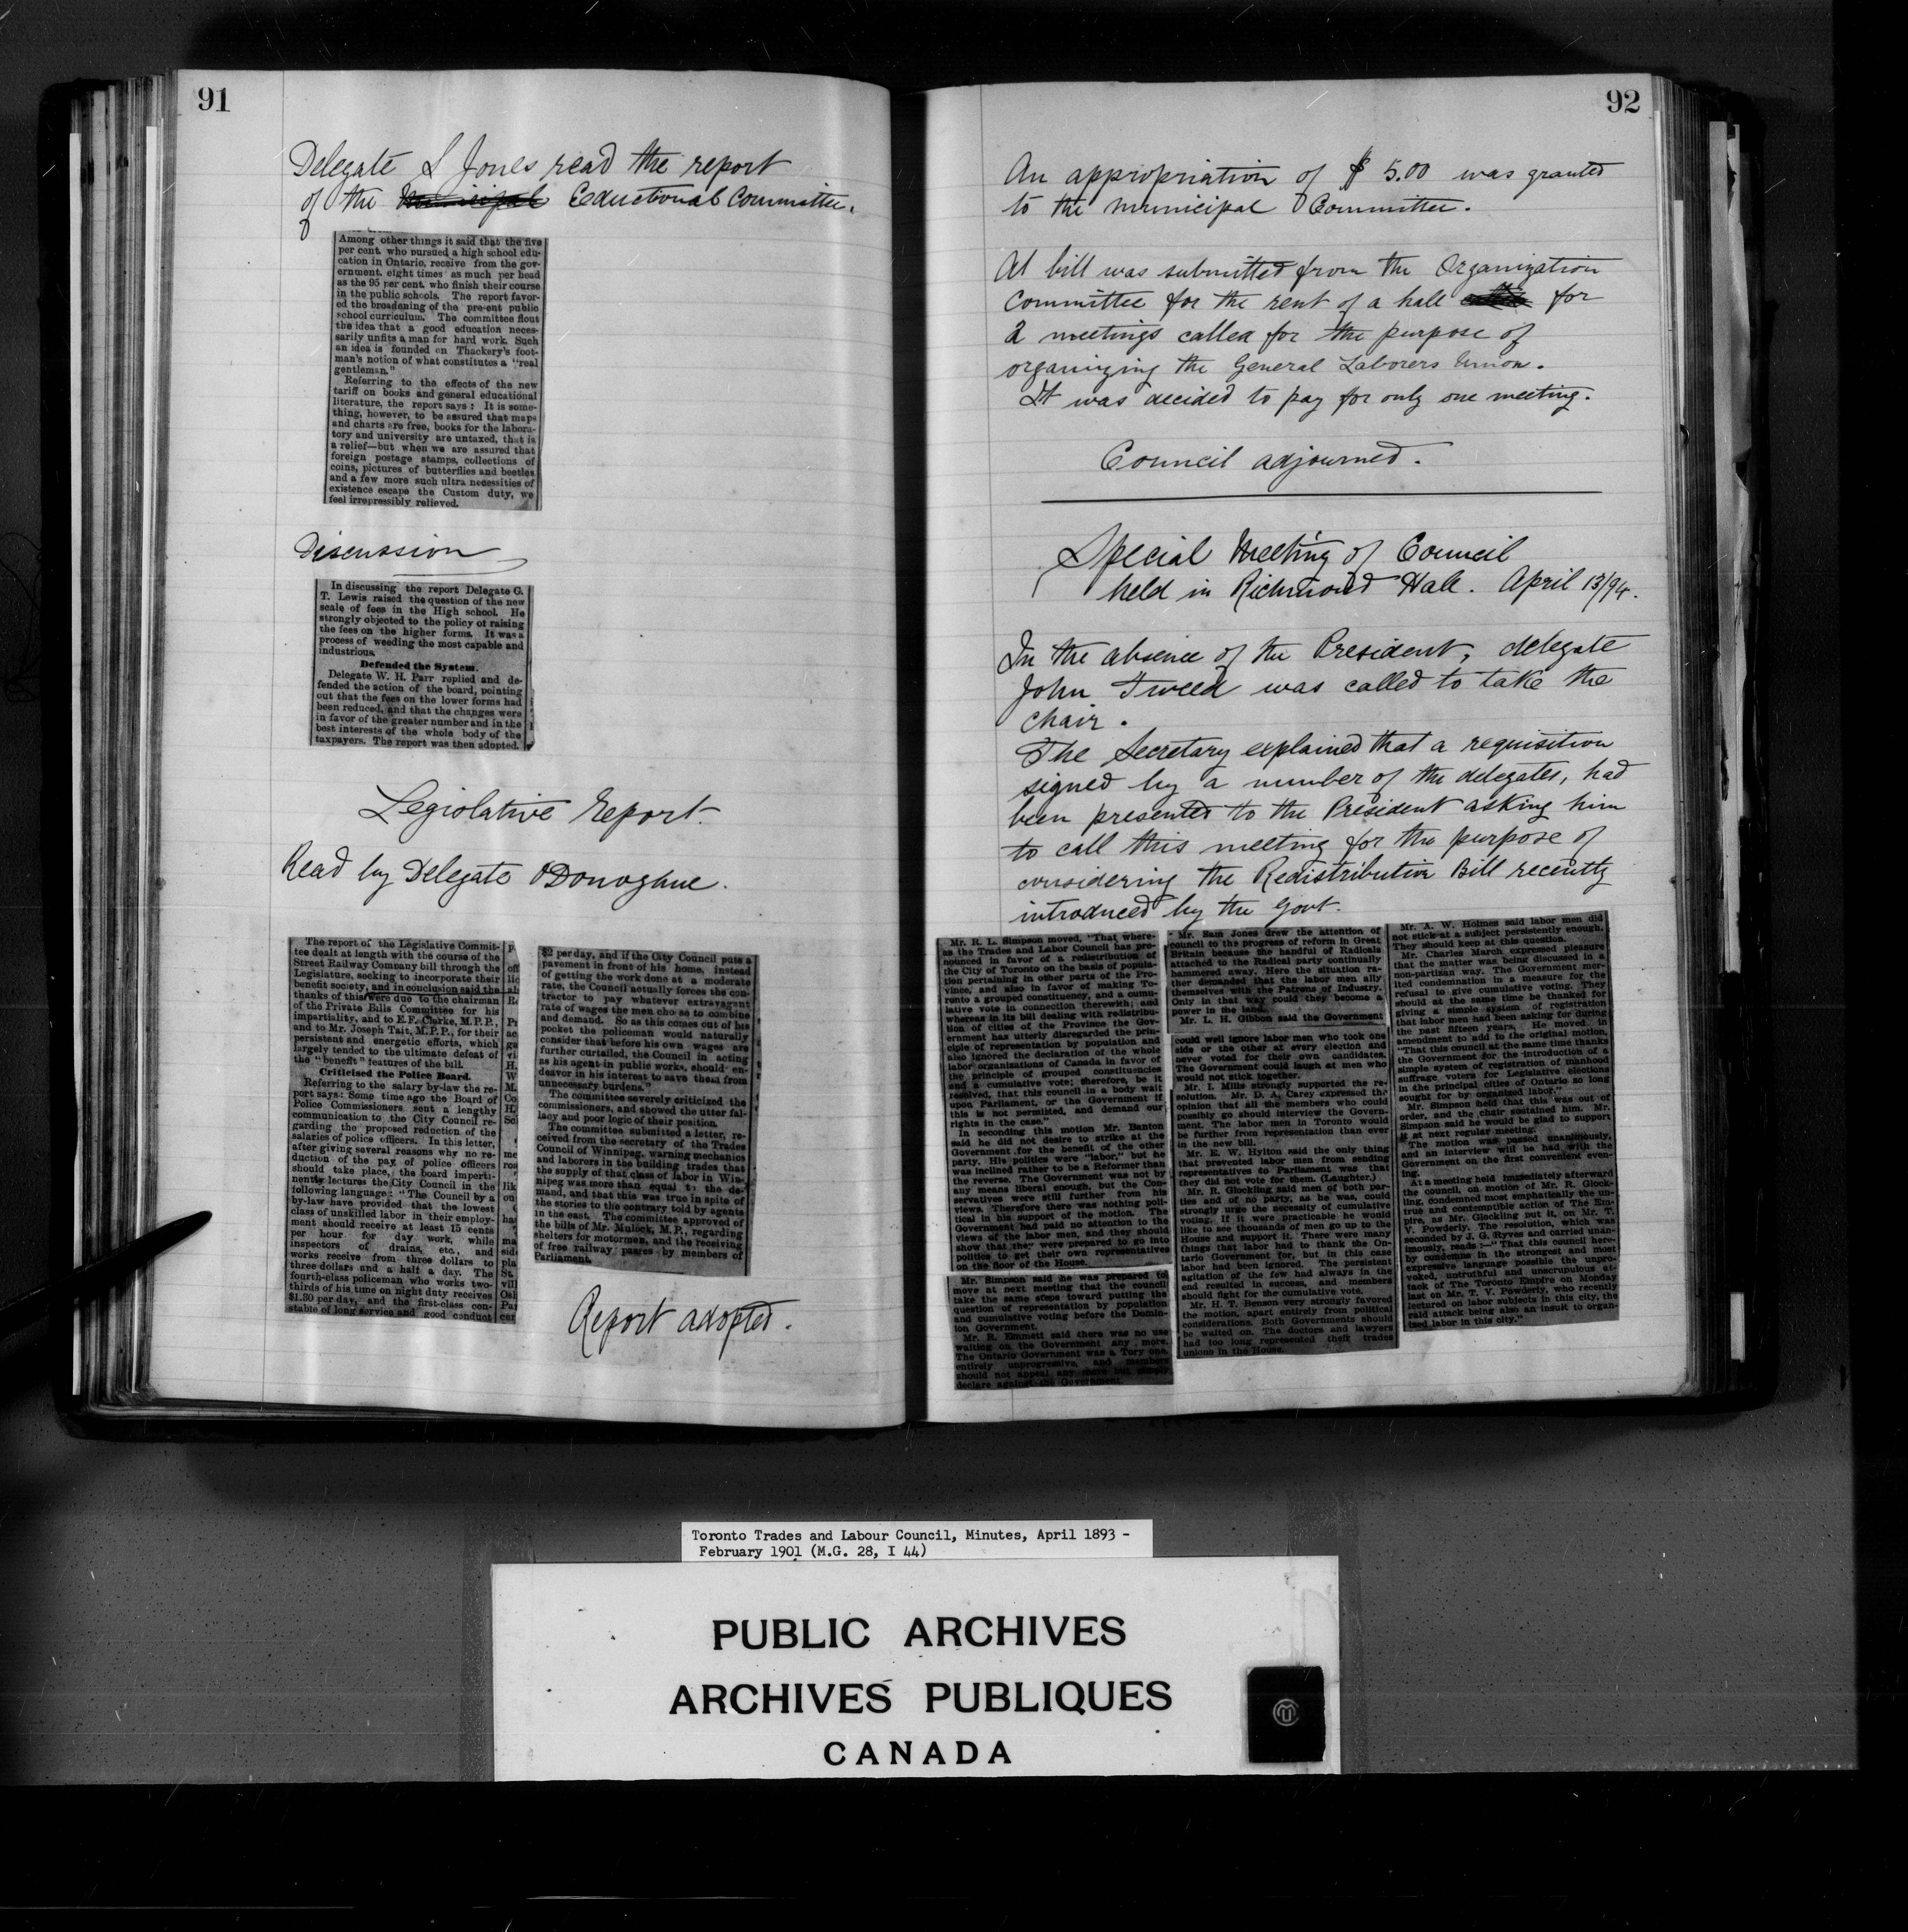 91
Delegate S Jones read the report
of the Municipal Eductional Committee.
Among other things it said that the five
per cent. who pursued a high school edu-
cation in Ontario, receive from the gov-
ernment, eight times as much per head
as the 95 per cent. who finish their course
in the public schools. The report favor-
ed the broadening of the present public
school curriculum. The committee flout
the idea that a good education neces-
sarily unfits a man for hard work. Such
an idea is founded on Thackery's foot-
man's notion of what constitutes a "real
gentleman."
Referring to the effects of the new
tariff on books and general educational
literature, the report says: It is some-
thing, however, to be assured that maps
and charts are free, books for the labora-
tory and university are untaxed, that is
a relief—but when we are assured that
foreign postage stamps, collections of
coins, pictures of butterflies and beetles
and a few more such ultra necessities of
existence escape the Custom duty, we
feel irrepressibly relieved.
Discussion
In discussing the report Delegate G.
T. Lewis raised the question of the new
scale of fees in the High school. He
strongly objected to the policy of raising
the fees on the higher forms. It was a
process of weeding the most capable and
industrious.
Defended the System.
Delegate W. H. Parr replied and de-
fended the action of the board, pointing
out that the fees on the lower forms had
been reduced, and that the changes were
in favor of the greater number and in the
best interests of the whole body of the
taxpayers. The report was then adopted.
Legislative Report.
Read by Delegate O'Donoghue.
The report of the Legislative Commit-
tee dealt at length with the course of the
Street Railway Company bill through the
Legislature, seeking to incorporate their
benefit society, and in conclusion said the
thanks of this were due to the chairman
of the Private Bills Committee for his
impartiality, and to E.F. Clarke, M.P.P.,
and to Mr. Joseph Tait, M.P.P., for their
persistent and energetic efforts, which
largely tended to the ultimate defeat of
the "benefit" features of the bill.
Criticised the Police Board.
Referring to the salary by-law the re-
port says: Some time ago the Board of
Police Commissioners sent a lengthy
communication to the City Council re-
garding the proposed reduction of the
salaries of police officers. In this letter,
after giving several reasons why no re-
duction of the pay of police officers
should take place, the board imperti-
nently lectures the City Council in the
following language: "The Council by a
by-law have provided that the lowest
class of unskilled labor in their employ-
ment should receive at least 15 cents
per hour for day work, while
inspectors of drains, etc., and
works receive from three dollars to
three dollars and a half a day. The
fourth-class policeman who works two-
thirds of his time on night duty receives
$1.30 per day, and the first-class con-
stable of long service and good conduct
$2 per day, and if the City Council puts a
pavement in front of his home, instead
of getting the work done at a moderate
rate, the Council actually forces the con-
tractor to pay whatever extravagant
rate of wages the men choose to combine
and demand. So as this comes out of his
pocket the policeman would naturally
consider that before his own wages are
further curtailed, the Council in acting
as his agent in public works, should en-
deavor in his interest to save them from
unnecessary burdens."
The committee severely criticized the
commissioners, and showed the utter fal-
lacy and poor logic of their position.
The committee submitted a letter, re-
ceived from the secretary of the Trades
Council of Winnipeg, warning mechanics
and laborers in the building trades that
the supply of that class of labor in Win-
nipeg was more than equal to the de-
mand, and that this was true in spite of
the stories to the contrary told by agents
in the east. The committee approved of
the bills of Mr. Mulock, M.P., regarding
shelters for motormen, and the receiving
of free railway passes by members of
Parliament.
Report adopted.
92
An appropriation of $ 5.00 was granted
to the Municipal Committee.
At bill was submitted from the Organization
Committee for the rent of a hall for
2 meetings called for the purpose of
organizing the General Laborers Union.
It was decided to pay for only one meeting.
Council adjourned.
Special Meeting of Council
held in Richmond Hall. April 13/94.
In the absence of the President, delegate
John Tweed was called to take the
chair.
The Secretary explained that a requisition
signed by a number of the delegates, had
been presented to the President asking him
to call this meeting for the purpose of
considering the Redistribution Bill recently
introduced by the Govt.
Mr. R. L. Simpson moved, "That where-
as the Trades and Labor Council has pro-
nounced in favor of a redistribution of
the City of Toronto on the basis of popula-
tion pertaining in other parts of the Pro-
vince, and also in favor of making To-
ronto a grouped constituency, and a cumu-
lative vote in connection therewith; and
whereas in its bill dealing with redistribu-
tion of cities of the Province the Gov-
ernment has utterly disregarded the prin-
ciple of representation by population and
also ignored the declaration of the whole
labor organizations of Canada in favor of
the principle of grouped constituencies
and a cumulative vote; therefore, be it
resolved, that this council in a body wait
upon Parliament, or the Government if
this is not permitted, and demand our
rights in the case."
In seconding this motion Mr. Banton
said he did not desire to strike at the
Government for the benefit of the other
party. His politics were "labor," but he
was inclined rather to be a Reformer than
the reverse. The Government was not by
any means liberal enough, but the Con-
servatives were still further from his
views. Therefore there was nothing poli-
tical in his support of the motion. The
Government had paid no attention to the
views of the labor men, and they should
show that they were prepared to go into
politics to get their own representatives
on the floor of the House.
Mr. Simpson said he was prepared to
move at next meeting that the council
take the same steps toward putting the
question of representation by population
and cumulative voting before the Domin-
ion Government.
Mr. R. Emmett said there was no use
waiting on the Government any more.
The Ontario Government was a Tory one,
entirely unprogressive, and members
should not appeal any more but simply
declare against the Government.
Mr. Sam Jones drew the attention of
council to the progress of reform in Great
Britain because the handful of Radicals
attached to the Radical party continually
hammered away. Here the situation ra-
ther demanded that the labor men ally
themselves with the Patrons of Industry.
Only in that way could they become a
power in the land.
Mr. L. H. Gibbon said the Government
could well ignore labor men who took one
side or the other at every election and
never voted for their own candidates.
The Government could laugh at men who
would not stick together.
Mr. I. Mills strongly supported the re-
solution. Mr. D. A. Carey expressed the
opinion that all the members who could
possibly go should interview the Govern-
ment. The labor men in Toronto would
be further from representation than ever
in the new bill.
Mr. E. W. Hylton said the only thing
that prevented labor men from sending
representatives to Parliament was that
they did not vote for them. (Laughter.)
Mr. R. Glockling said men of both par-
ties and of no party, as he was, could
strongly urge the necessity of cumulative
voting. If it were practicable he would
like to see thousands of men go up to the
House and support it. There were many
things that labor had to thank the On-
tario Government for, but in this case
labor had been ignored. The persistent
agitation of the few had always in the
end resulted in success, and members
should fight for the cumulative vote.
Mr. H. T. Benson very strongly favored
the motion, apart entirely from political
considerations. Both Governments should
be waited on. The doctors and lawyers
had too long represented their trades
unions in the House.
Mr. A. W. Holmes said labor men did
not stick at a subject persistently enough.
They should keep at this question.
Mr. Charles March expressed pleasure
that the matter was being discussed in a
non-partizan way. The Government mer-
ited condemnation in a measure for the
refusal to give cumulative voting. They
should at the same time be thanked for
giving a simple system of registration
that labor men had been asking for during
the past fifteen years. He moved in
amendment to add to the original motion,
"That this council at the same time thanks
the Government for the introduction of a
simple system of registration of manhood
suffrage voters for Legislative elections
in the principal cities of Ontario so long
sought for by organized labor."
Mr. Simpson held that this was out of
order, and the chair sustained him. Mr.
Simpson said he would be glad to support
it at next regular meeting.
The motion was passed unanimously,
and an interview will be had with the
Government on the first convenient even-
ing.
At a meeting held immediately afterward
the council, on motion of Mr. R. Glock-
ling, condemned most emphatically the un-
true and contemptible action of The Em-
pire, as Mr. Glockling put it, on Mr. T.
V. Powderly. The resolution, which was
seconded by J. G. Ryves and carried unan-
imously, reads:—"That this council here-
by condemns in the strongest and most
expressive language possible the unpro-
voked, untruthful and unscrupulous at-
tack of The Toronto Empire on Monday
last on Mr. T. V. Powderly, who recently
lectured on labor subjects in this city, the
said attack being also an insult to organ-
ized labor in this city."
Toronto Trades and Labour Council, Minutes, April 1893 -
February 1901 (M.G. 28, I 44)
PUBLIC ARCHIVES
ARCHIVES PUBLIQUES
CANADA